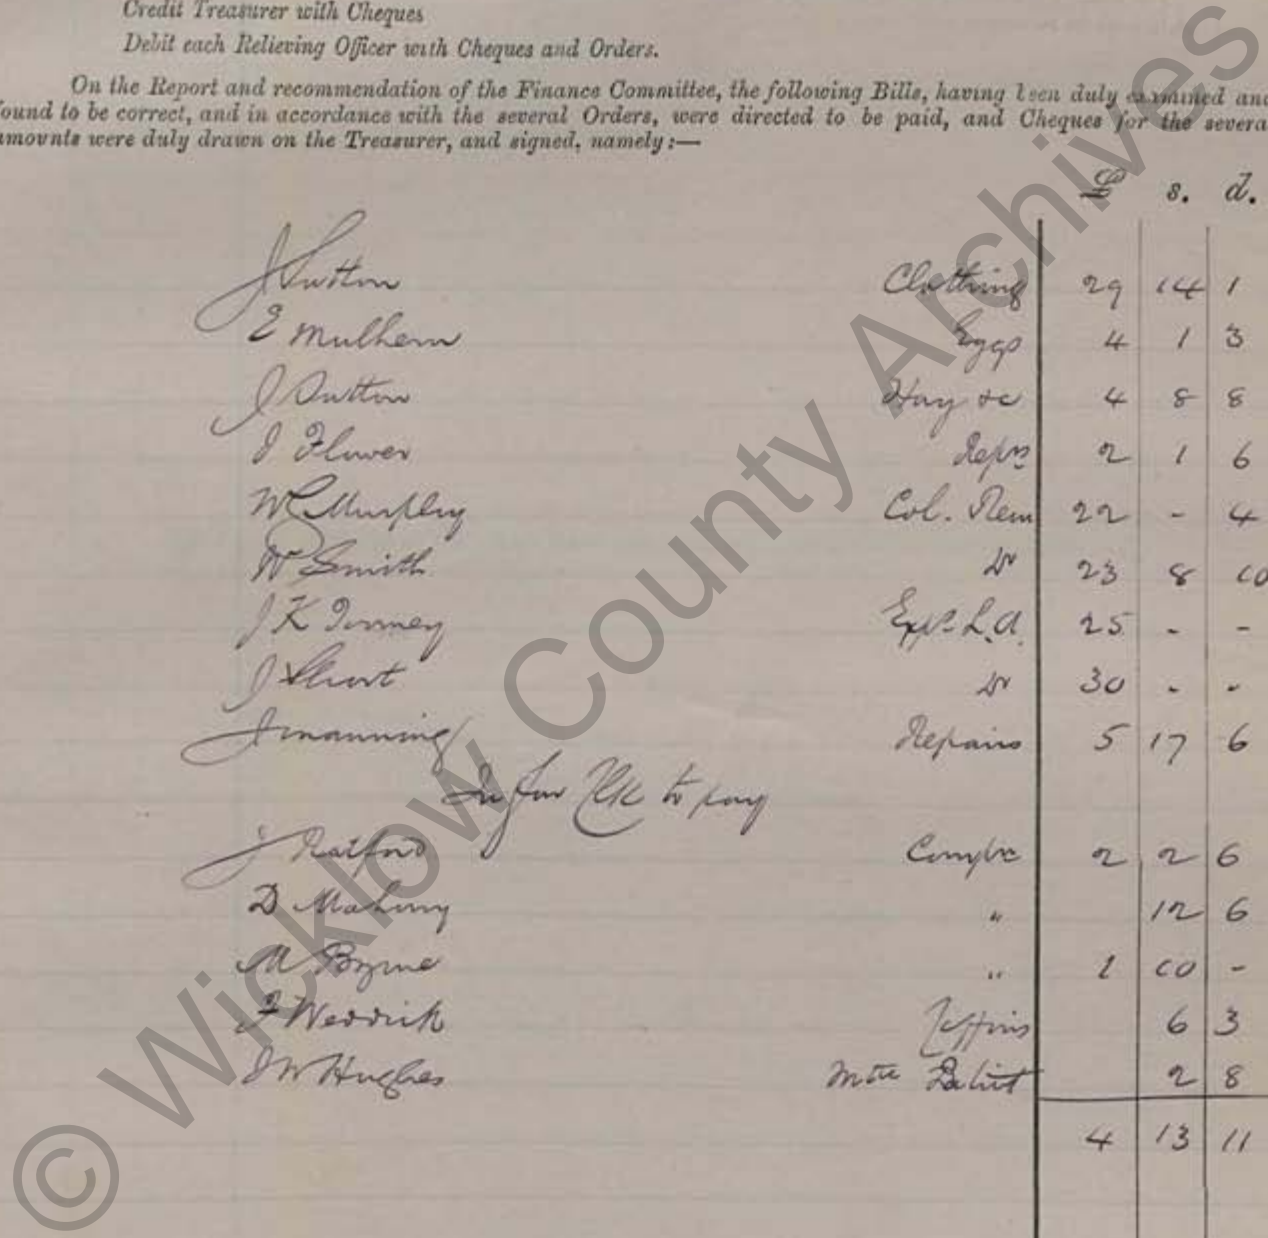 Credit Treasurer with Cheques
Debit each Relieving Officer with Cheques and Orders.
On the Report and recommendation of the Finance Committee, the following Bills, having been duly examined and
found to be correct, and in accordance with the several Orders, were directed to be paid, and Cheques for the several
amounts were duly drawn on the Treasurer, and signed, namely:—
£ s. d.
J Sutton Clothing 29 14 1
E Mulhern Eggs 4 1 3
J Sutton Hay &c 4 8 8
J Flower Reprs 2 1 6
W Murphy Col. Rem 22 - 4
W Smith Do 23 8 10
J K Exps L.A. 25 - -
J Short Do 30 - -
J Manning Repairs 5 17 6
for Clk to pay
J Ratford 2 2 6
D Mahony " 12 6
M Byrne " 1 10 -
6 3
J W Hughes 2 8
4 13 11
© Wicklow County Archives